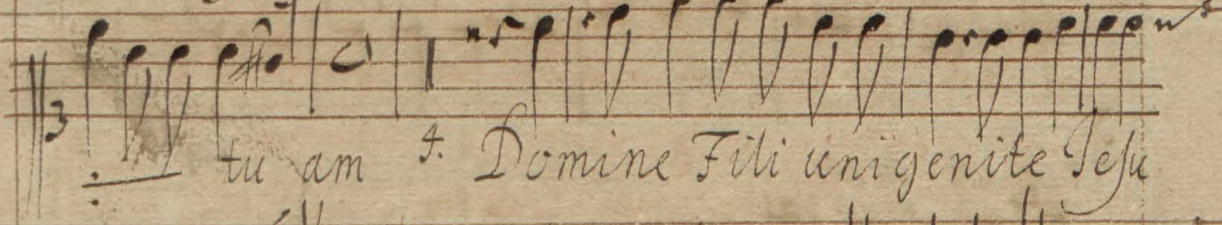 3
tu am 4. Domine Fili unigenite Jesu